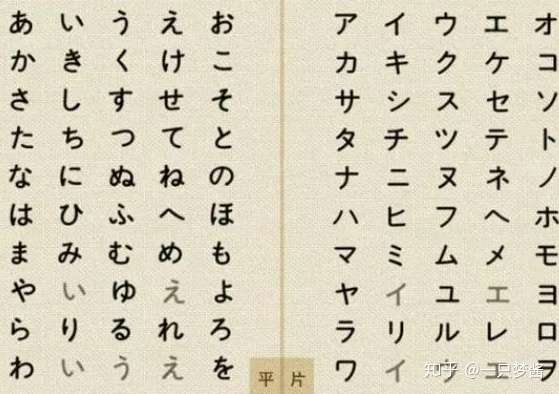 あ い う え お ア イ ウ エ オ
か き く け こ カ キ ク ケ コ
さ し す せ そ サ シ ス セ ソ
た ち つ て と タ チ ツ テ ト
な に ぬ ね の ナ ニ ヌ ネ ノ
は ひ ふ へ ほ ハ ヒ フ ヘ ホ
ま み む め も マ ミ ム メ モ
や い ゆ え よ ヤ イ ユ エ ヨ
ら り る れ ろ ラ リ ル レ ロ
わ い う え を ワ イ ウ エ ヲ
平 片
知乎 @一只梦酱